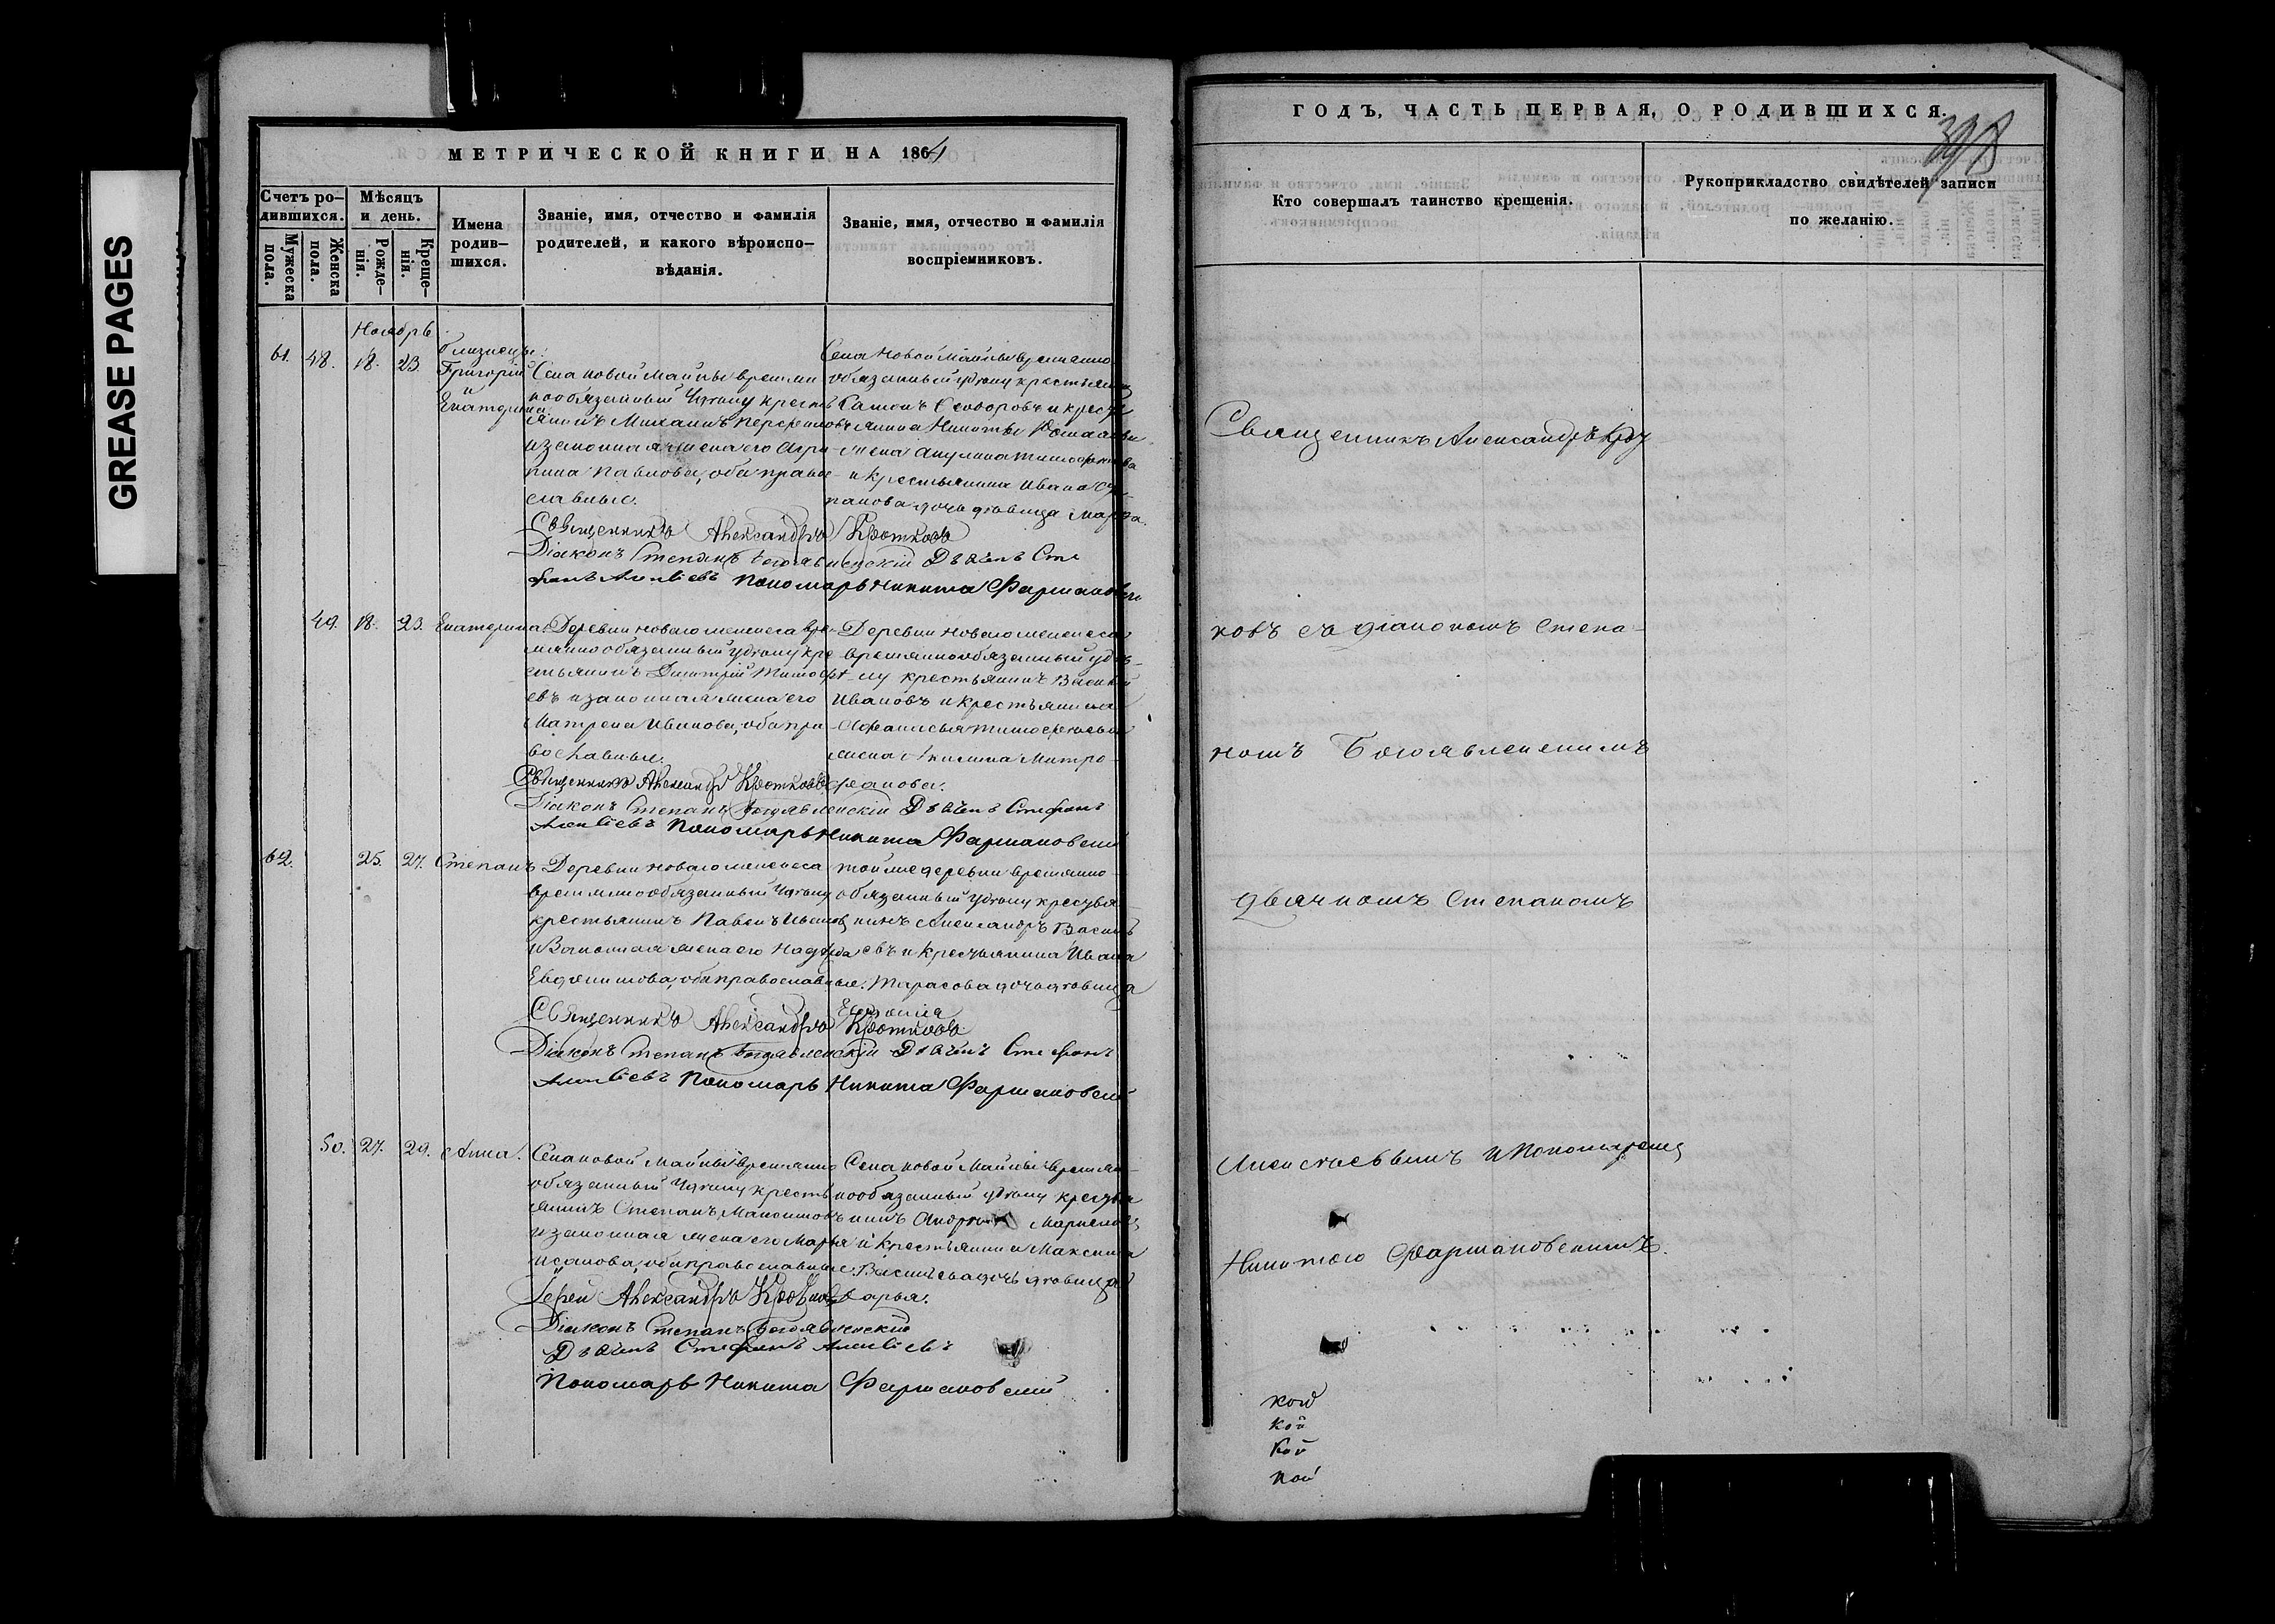 GREASE PAGES
МЕТРИЧЕСКОЙ КНИГИ НА 1864
Счетъ ро-
дившихся.
Мужеска
пола.
Женска
пола.
Мѣсяцъ
и день.
Рожде-
нія.
Креще-
нія.
Имена
родив-
шихся.
Званіе, имя, отчество и фамилія
родителей, и какого вѣроиспо-
вѣданія.
Званіе, имя, отчество и фамилія
воспріемниковъ.
Ноябрь
61. 48. 18. 23.
близнецы:
Григорій
и
Екатерина.
Села Новой Майны времян
нообязанный Удѣлу кресть
янинъ Михаилъ Перфиловъ
и законная жена его Агри-
пина Павлова, оба право-
славные.
Села Новой Майны временно
обязанный удѣлу крестьянин
Самсонъ Ѳеодоровъ и кресть
янина Никиты
жена Акулина Тимофѣева
и крестьянина Ивана Сте-
панова дочь дѣвица Марѳа.
Священникъ Александръ Кротковъ
Діаконъ Степанъ Богоявленскій Дьячекъ Сте
фанъ Алексѣевъ Пономарь Никита Фармаковск
49. 18. 23. Екатерина.
Деревни Новаго Мелекеса вре-
мяннообязанный удѣлу кре
стьянинъ Димитрій Тимофѣ
евъ и законная жена его
Матрена Иванова, оба пра-
вославные.
Деревни Новаго Мелекеса
времяннообязанный удѣ-
лу крестьянинъ Василій
Ивановъ и крестьянина
Аѳанасья Тимофѣева
жена Акилина Митро-
фанова.
Священникъ Александръ Кротковъ
Діаконъ Степанъ Богоявленскій Дьячекъ Стефанъ
Алексѣевъ Пономарь Никита Фармаковскій
62. 25. 27. Степанъ
Деревни Новаго Мелекеса
времяннообязанный Удѣлу
крестьянинъ Павелъ Ивановъ
и Законная жена его Надежда
Евдокимова, оба православные.
той же деревни времянно-
обязанный Удѣлу крестья
нинъ Александръ Василь
евъ и крестьянина Ивана
Тарасова дочь дѣвица
Священникъ Александръ Кротковъ
Діаконъ Степанъ Богоявленскій Дьячекъ Стефанъ
Алексѣевъ Пономарь Никита Фармаковскій
50. 27. 29. Анна.
Села Новой Майны времянно
обязанный Удѣлу кресть
янинъ Степанъ Максимовъ
и законная жена его Марья
Исакова, оба православные.
Села Новой Майны времян-
нообязанный удѣлу крестья
нинъ Андрей
и крестьянина Максима
Васильева дочь дѣвица
Дарья.
Іерей Александръ Кротковъ
Діаконъ Степанъ Богоявленскій
Дьячекъ Стефанъ Алексѣевъ
Пономарь Никита Фармаковскій
ГОДЪ, ЧАСТЬ ПЕРВАЯ, О РОДИВШИХСЯ.
Кто совершалъ таинство крещенія.
Рукоприкладство свидѣтелей записи
по желанію.
Священникъ Александръ Крот
ковъ съ діакономъ Степа-
номъ Богоявленскимъ
дьячкомъ Степаномъ
Алексѣевымъ и Пономаремъ
Никитою Фармаковскимъ.
кой
кой
кой
кой